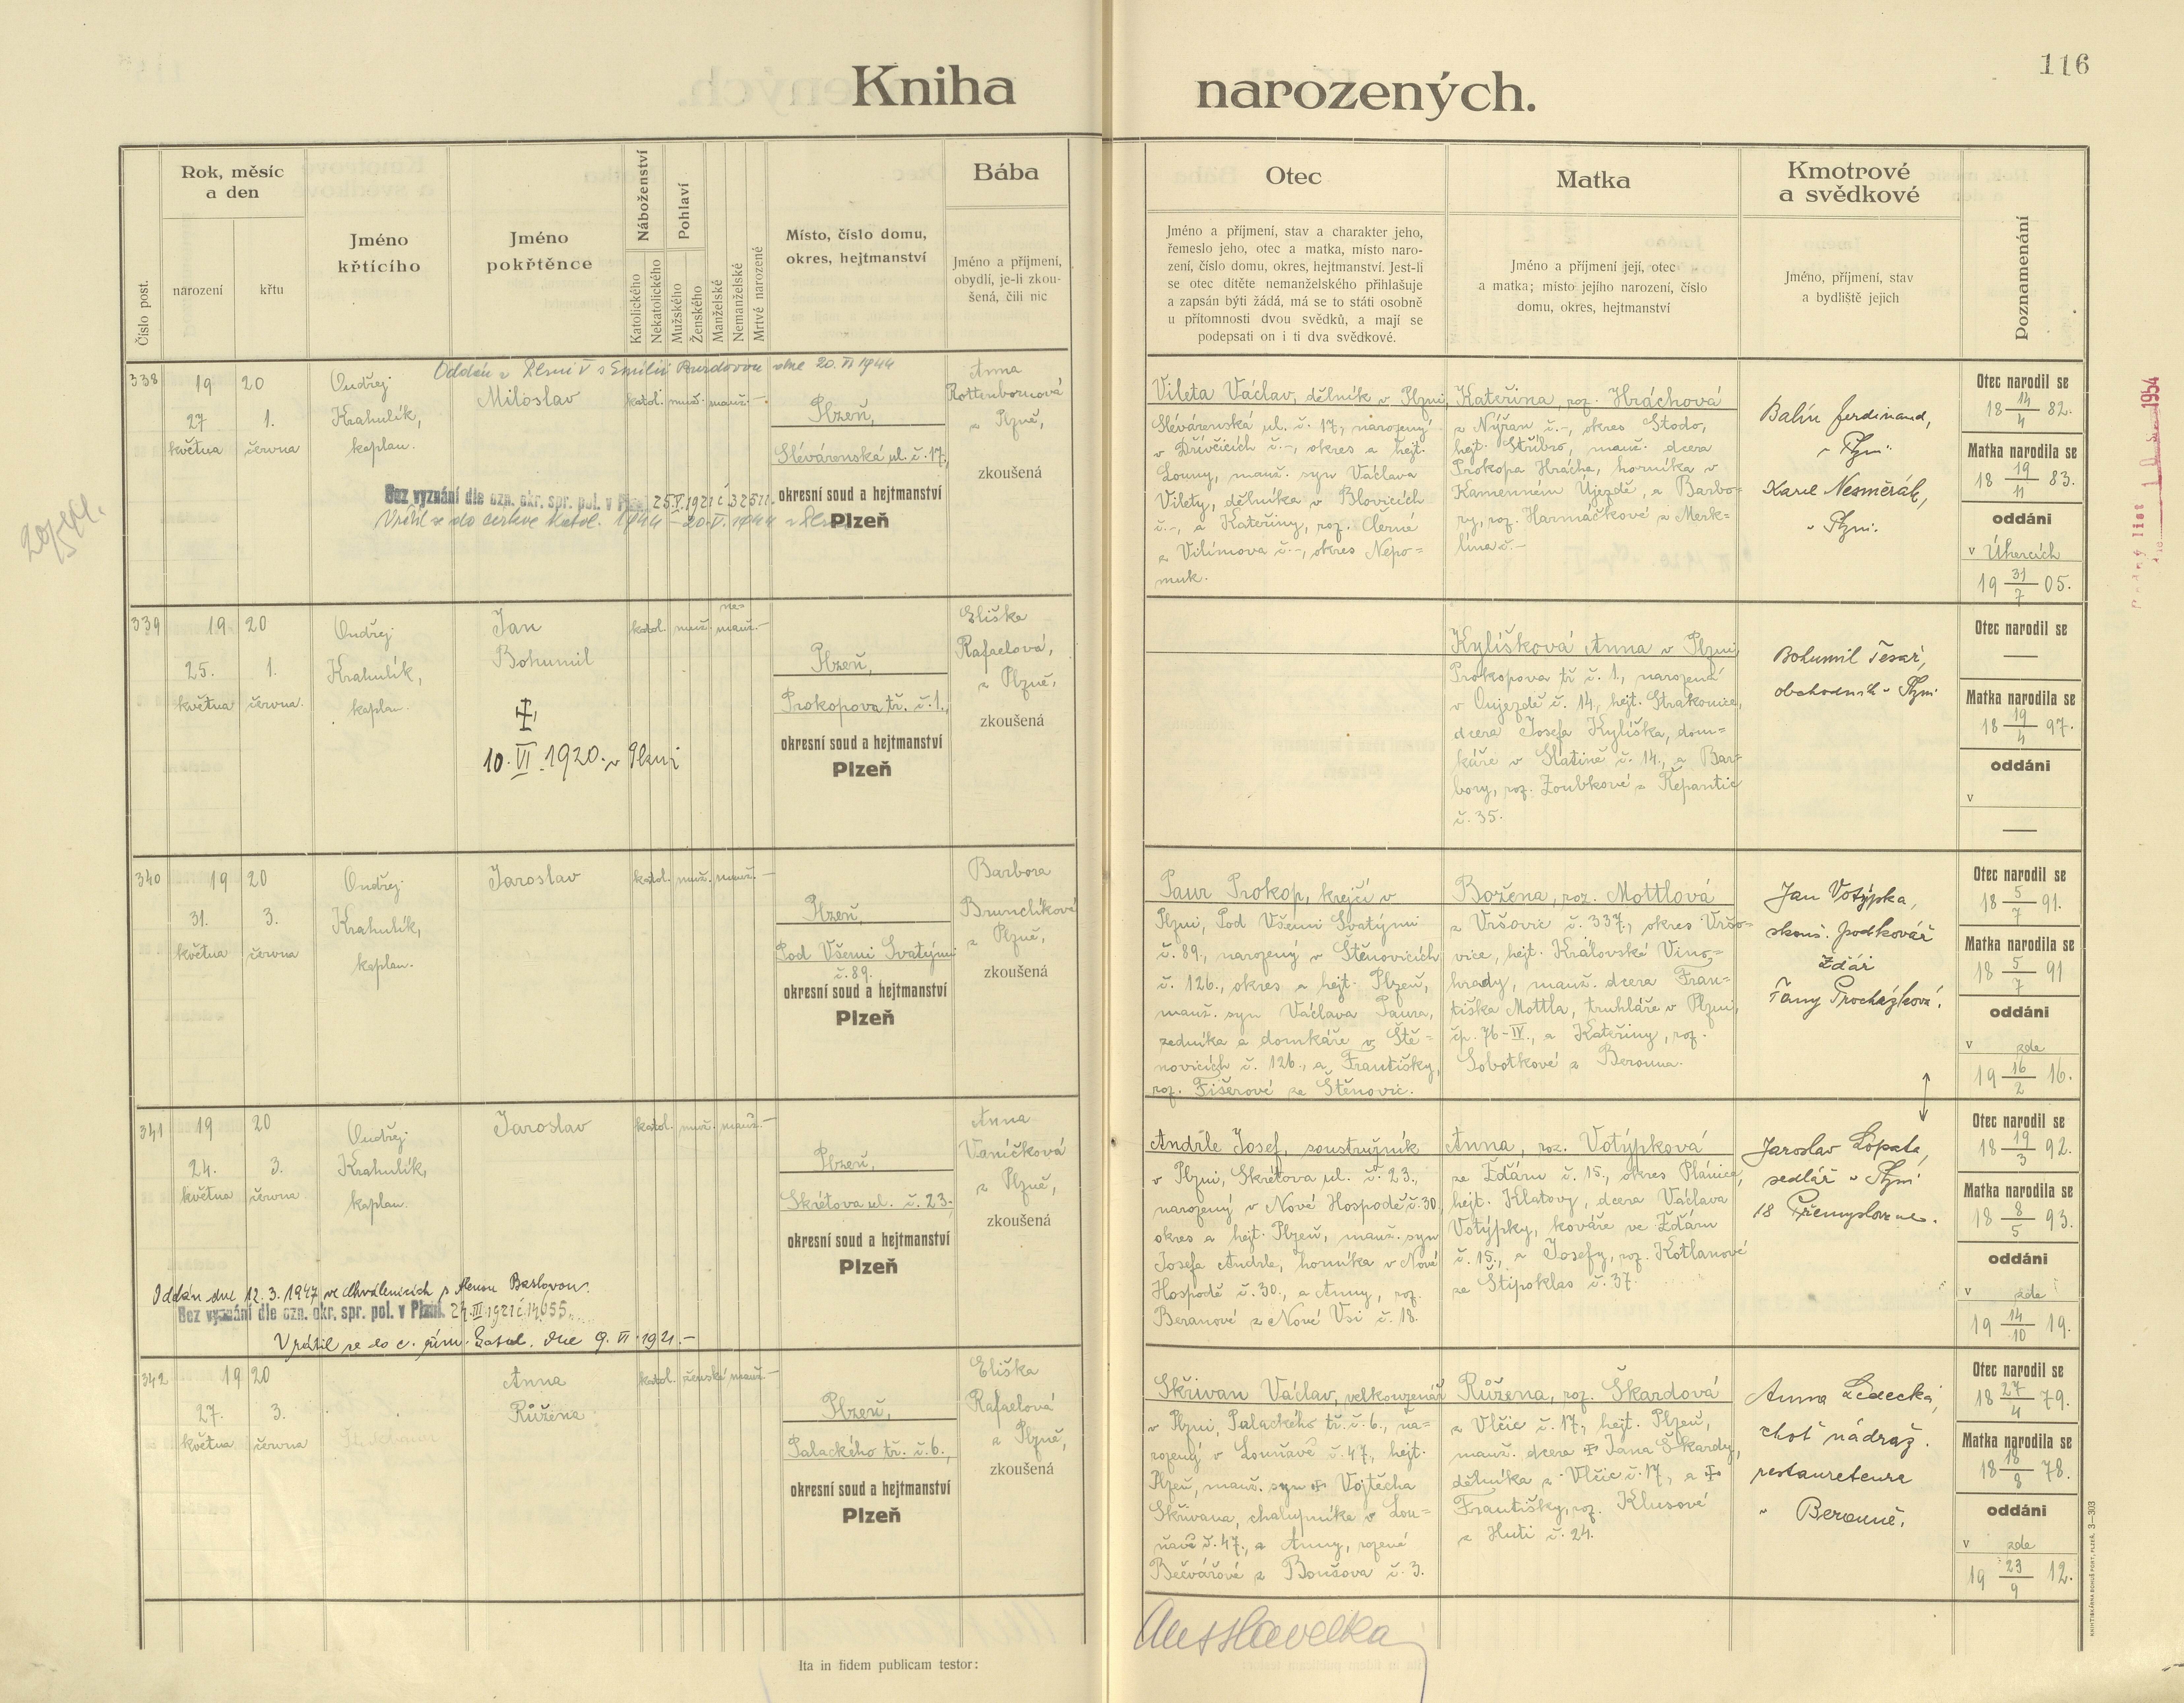 116
Kniha narozených.
Číslo post.
Rok, měsíc
a den
narození
křtu
Jméno
křtícího
Jméno
pokřtěnce
Náboženství
Katolického
Nekatolického
Pohlaví
Mužského
Ženského
Manželské
Nemanželské
Mrtvě narozené
Místo, číslo domu,
okres, hejtmanství
Bába
Jméno a příjmení,
obydlí, je-li zkou-
šená, čili nic
Otec
Jméno a příjmení, stav a charakter jeho,
řemeslo jeho, otec a matka, místo naro-
zení, číslo domu, okres, hejtmanství. Jest-li
se otec dítěte nemanželského přihlašuje
a zapsán býti žádá, má se to státi osobně
u přítomnosti dvou svědků, a mají se
podepsati on i ti dva svědkové.
Matka
Jméno a příjmení její, otec
a matka; místo jejího narození, číslo
domu, okres, hejtmanství
Kmotrové
a svědkové
Jméno, příjmení, stav
a bydliště jejich
Poznamenání
Oddán v Plzni V s Emilií Burdovou dne 20. VI 1944
338
19 20
27 1.
května června
Ondřej
Krahulík,
kaplan.
Miloslav
katol. muž. manž. –
Plzeň,
Slévárenská ul. č. 17.,
okresní soud a hejtmanství
Plzeň
Anna
Rottenbornová
z Plzně,
zkoušená
Bez vyznání dle ozn. okr. spr. pol. v Plzni 25.V.1921 č 32511.
Vrátil se do církve katol. 1944 – 20. V. 1944 v Plzni
Vileta Václav, dělník v Plzni,
Slévárenská ul. č. 17., narozený
v Dřívčicích č. –, okres a hejt.
Louny, manž. syn Václava
Vilety, dělníka v Blovicích
č. –, a Kateřiny, roz. Černé
z Vilímova č. –, okres Nepo=
muk.
Kateřina, roz. Hráchová
z Nýřan č. –, okres Stodo,
hejt. Stříbro, manž. dcera
Prokopa Hrácha, horníka v
Kamenném Újezdě, a Barbo=
ry, roz. Harmáčkové z Merk=
lína č. –
Balín Ferdinand,
v Plzni.
Karel Nesměrák,
v Plzni.
Otec narodil se
18 14/4 82.
Matka narodila se
18 19/11 83.
oddáni
v Úhercích
19 31/7 05.
1954
339
19 20
25. 1.
května června.
Ondřej
Krahulík,
kaplan.
Jan
Bohumil
10. VI. 1920. v Plzni
katol. muž. ne=
manž. –
Plzeň,
Prokopova tř. č. 1.,
okresní soud a hejtmanství
Plzeň
Eliška
Rafaelová,
z Plzně,
zkoušená
Kylíšková Anna v Plzni,
Prokopova tř. č. 1., narozená
v Oujezdě č. 14., hejt. Strakonice,
dcera Josefa Kylíška, dom=
káře v Slatině č. 14., a Bar=
bory, roz. Zoubkové z Řepantic
č. 35.
Bohumil Tesař,
obchodník v Plzni
Otec narodil se
—
Matka narodila se
18 19/4 97.
oddáni
v
—
340
19 20
31. 3.
května června
Ondřej
Krahulík,
kaplan.
Jaroslav
katol. muž. manž. –
Plzeň,
Pod Všemi Svatými
č. 89.
okresní soud a hejtmanství
Plzeň
Barbora
Brunclíková
z Plzně,
zkoušená
Paur Prokop, krejčí v
Plzni, Pod Všemi Svatými
č. 89., narozený v Štěnovicích
č. 126., okres a hejt. Plzeň,
manž. syn Václava Paura,
zedníka a domkáře v Ště=
novicích č. 126., a Františky,
roz. Fišerové ze Štěnovic.
Božena, roz. Mottlová
z Vršovic č. 337., okres Vršo=
vice, hejt. Královské Vino=
hrady, manž. dcera Fran=
tiška Mottla, truhláře v Plzni,
čp. 76-IV., a Kateřiny, roz.
Sobotkové z Berouna.
Jan Votýpka,
zkouš. podkovář
Ždár
Fany Procházková.
Otec narodil se
18 5/7 91.
Matka narodila se
18 5/7 91
oddáni
v zde
19 16/2 16.
341
19 20
24. 3.
května června
Ondřej
Krahulík,
kaplan.
Jaroslav
katol. muž. manž. –
Plzeň,
Skrétova ul. č. 23.,
okresní soud a hejtmanství
Plzeň
Anna
Vaníčková
z Plzně,
zkoušená
Oddán dne 12. 3. 1947 ve Chválenicích s Alenou Baslovou.
Bez vyznání dle ozn. okr. spr. pol. v Plzni. 24.III 1921 č 14655.
Vrátil se do c. řím. katol. dne 9. VI. 1921. –
Andrle Josef, soustružník
v Plzni, Skrétova ul. č. 23.,
narozený v Nové Hospodě č. 30,
okres a hejt. Plzeň, manž. syn
Josefa Andrle, horníka v Nové
Hospodě č. 30., a Anny, roz.
Beranové z Nové Vsi č. 18.
Anna, roz. Votýpková
ze Ždáru č. 15., okres Plánice,
hejt. Klatovy, dcera Václava
Votýpky, kováře ve Ždáru
č. 15., a Josefy, roz. Kotlanové
ze Štipoklas č. 37.
Jaroslav Lopata,
sedlář v Plzni
18 Přemyslova.
Otec narodil se
18 19/3 92.
Matka narodila se
18 8/5 93.
oddáni
v zde
19 14/10 19.
342
19 20
27. 3.
května června
Anna
Růžena
katol. ženské manž. –
Plzeň,
Palackého tř. č. 6.,
okresní soud a hejtmanství
Plzeň
Eliška
Rafaelová
z Plzně,
zkoušená
Skřivan Václav, velkouzenář
v Plzni, Palackého tř. č. 6., na=
rozený v Louňavě č. 47., hejt.
Plzeň, manž. syn ✠ Vojtěcha
Skřivana, chalupníka v Lou=
ňavě č. 47., a Anny, rozené
Bečvářové z Boušova č. 3.
Růžena, roz. Škardová
z Vlčic č. 17., hejt. Plzeň,
manž. dcera ✠ Jana Škardy,
dělníka z Vlčic č. 17., a ✠
Františky, roz. Klusové
z Huti č. 24.
Anna Ledecká,
choť nádraž.
restauratéura
v Berouně.
Otec narodil se
18 27/4 79.
Matka narodila se
18 18/8 78.
oddáni
v zde
19 23/9 12.
Ita in fidem publicam testor:
KNIHTISKÁRNA BOHUŠ PORT, PLZEŇ. 3—303